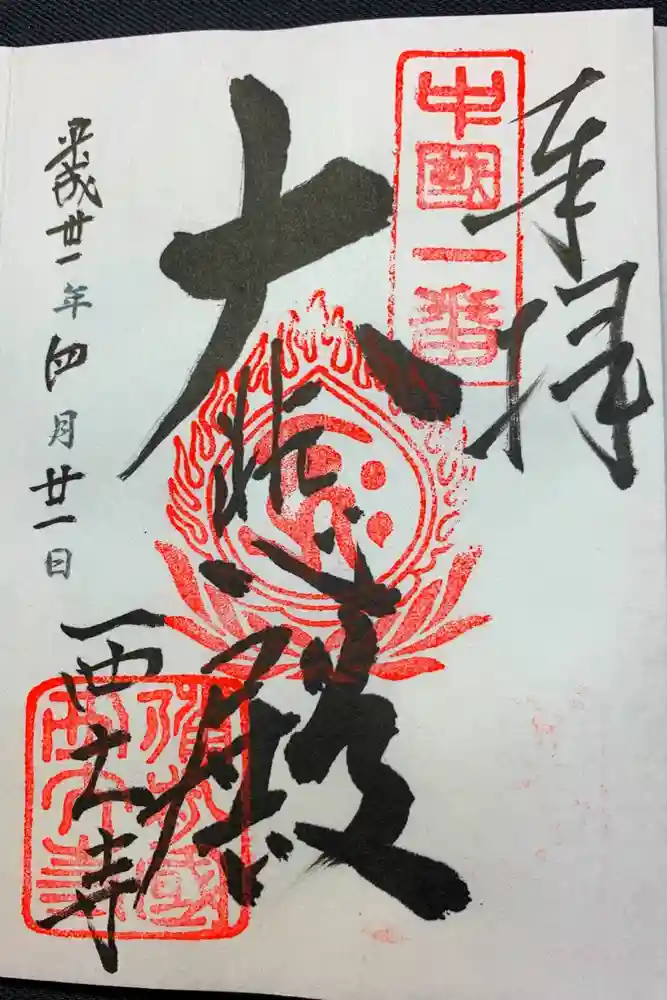 奉拝
中國一番
大悲殿
平成廿一年四月廿一日
西大寺
備前國
西大寺